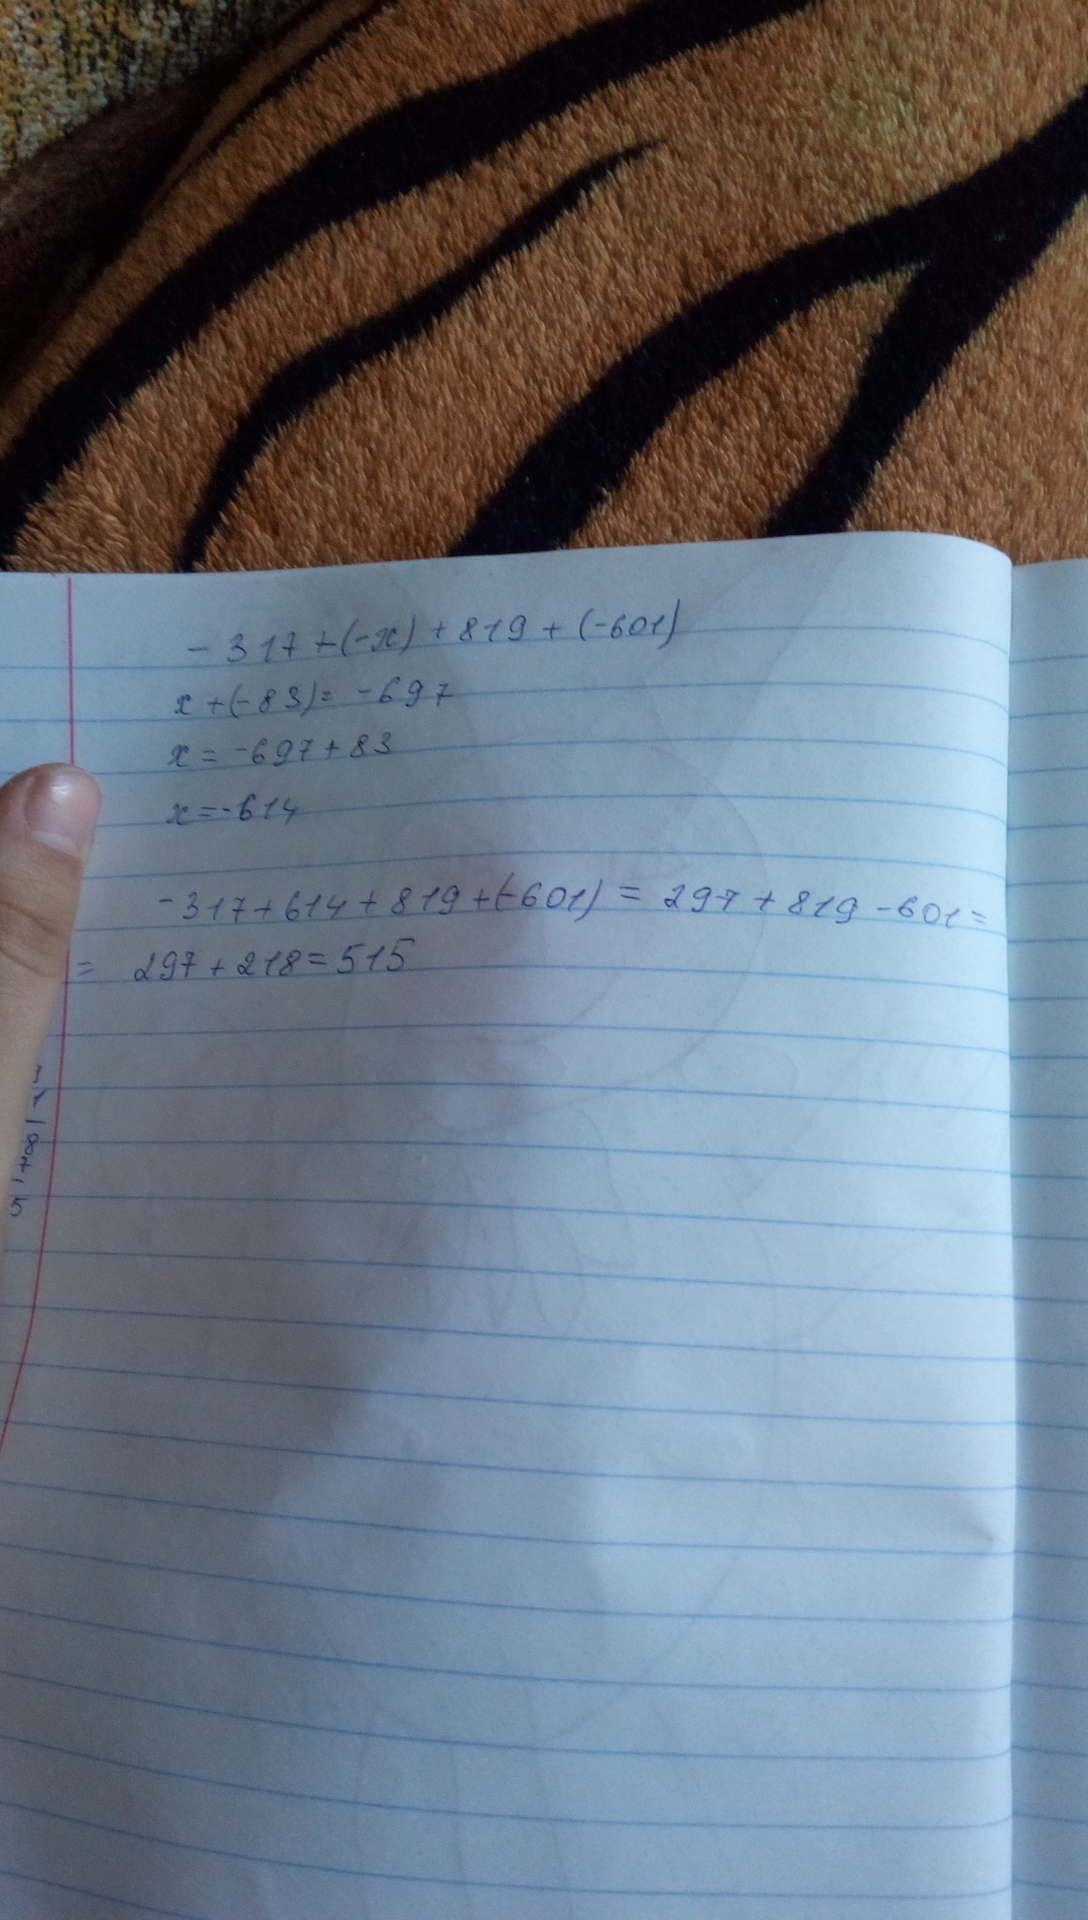 - 317 + (-x) + 819 + (-601)
x + (-83) = -697
x = -697 + 83
x = -614
-317 + 614 + 819 + (-601) = 297 + 819 - 601 =
= 297 + 218 = 515